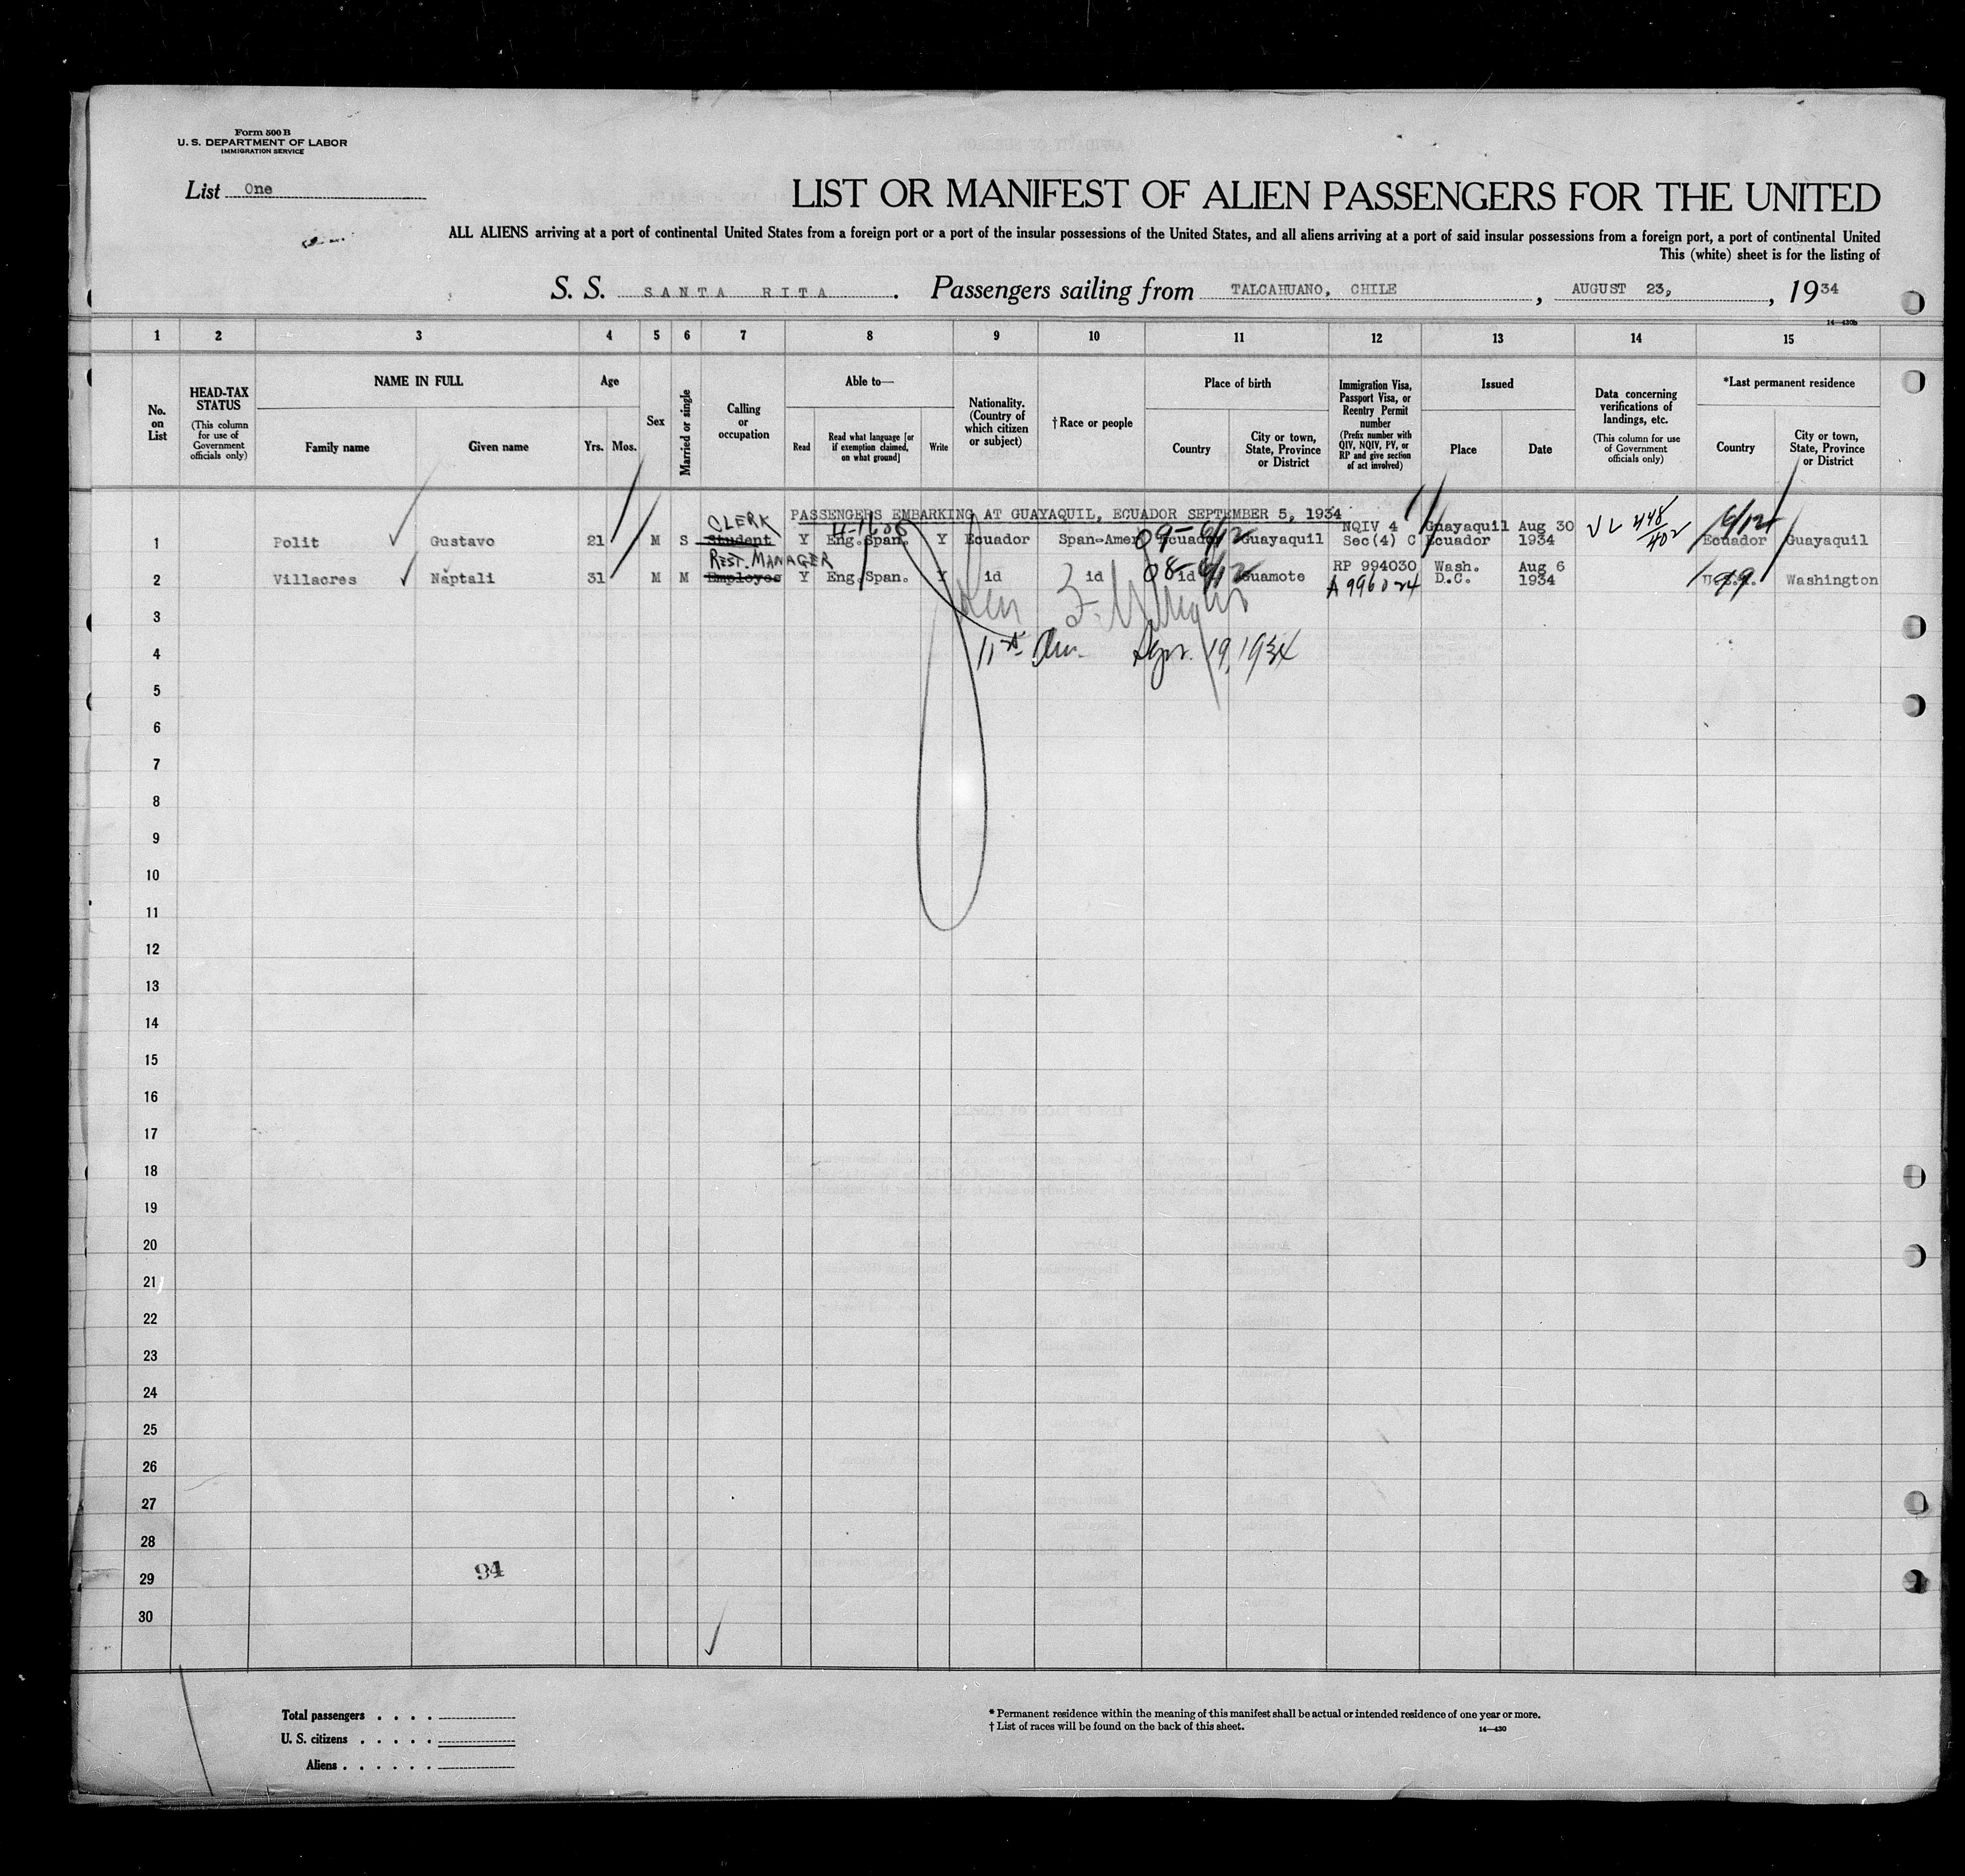 Form 500 B
U. S. DEPARTMENT OF LABOR
IMMIGRATION SERVICE
List One
LIST OR MANIFEST OF ALIEN PASSENGERS FOR THE UNITED
ALL ALIENS arriving at a port of continental United States from a foreign port or a port of the insular possessions of the United States, and all aliens arriving at a port of said insular possessions from a foreign port, a port of continental United
This (white) sheet is for the listing of
S. S. SANTA RITA. Passengers sailing from TALCAHUANO, CHILE, AUGUST 23, , 1934
14—430b
1 2 3 4 5 6 7 8 9 10 11 12 13 14 15
No. on List
HEAD-TAX STATUS (This column for use of Government officials only)
NAME IN FULL
Family name
Given name
Age
Yrs. Mos.
Sex
Married or single
Calling or occupation
Able to—
Read
Read what language [or if exemption claimed, on what ground]
Write
Nationality. (Country of which citizen or subject)
† Race or people
Place of birth
Country
City or town, State, Province or District
Immigration Visa, Passport Visa, or Reentry Permit number (Prefix number with QIV, NQIV, PV, or RP and give section of act involved)
Issued
Place
Date
Data concerning verifications of landings, etc. (This column for use of Government officials only)
*Last permanent residence
Country
City or town, State, Province or District
PASSENGERS EMBARKING AT GUAYAQUIL, ECUADOR SEPTEMBER 5, 1934
CLERK NQIV 4 Guayaquil Aug 30 VL 448/402 6/12
1 Polit Gustavo 21 M S Student Y Eng. Span. Y Ecuador Span-Amer 09- Ecuador 6/12 Guayaquil Sec(4) C Ecuador 1934 Ecuador Guayaquil
REST. MANAGER RP 994030 Wash. Aug 6
2 Villacres Naptali 31 M M Employee Y Eng. Span. Y id id 08- id 6/12 Guamote A 996024 D.C. 1934 99 Washington
3
4 Apr. 19, 1934
5
6
7
8
9
10
11
12
13
14
15
16
17
18
19
20
21
22
23
24
25
26
27
28
29 94
30
Total passengers . . . .
U. S. citizens . . . . .
Aliens . . . . . .
* Permanent residence within the meaning of this manifest shall be actual or intended residence of one year or more.
† List of races will be found on the back of this sheet.
14—430